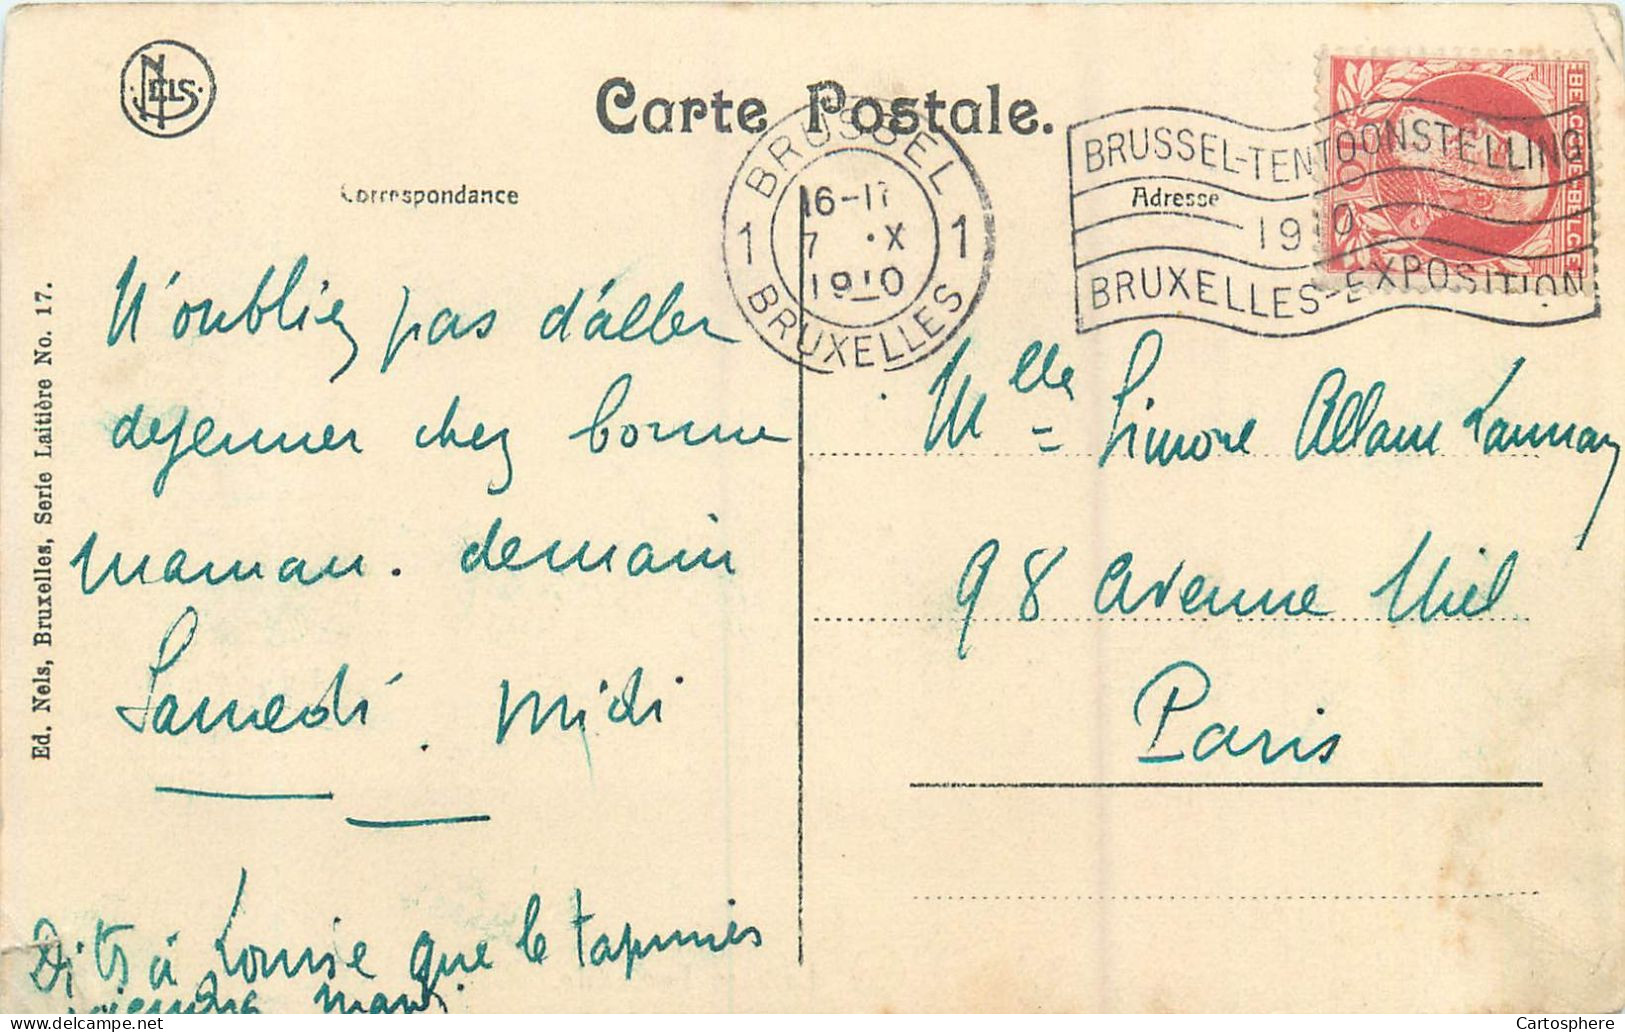 NELS
Carte Postale.
BRUSSEL
1 16-17 1
7 .X
1910
BRUXELLES
BRUSSEL-TENTOONSTELLING
1910
BRUXELLES-EXPOSITION
BELGIQUE-BELGIË
Correspondance
Adresse
Ed. Nels, Bruxelles, Serie Laitière No. 17.
N'oubliez pas d'aller
dejeuner chez bonne
maman. demain
Samedi. midi
Dits à Louise que le tapissier
viendra mardi
Mlle Simone Allain Launay
98 avenue Niel
Paris
Cartosphere